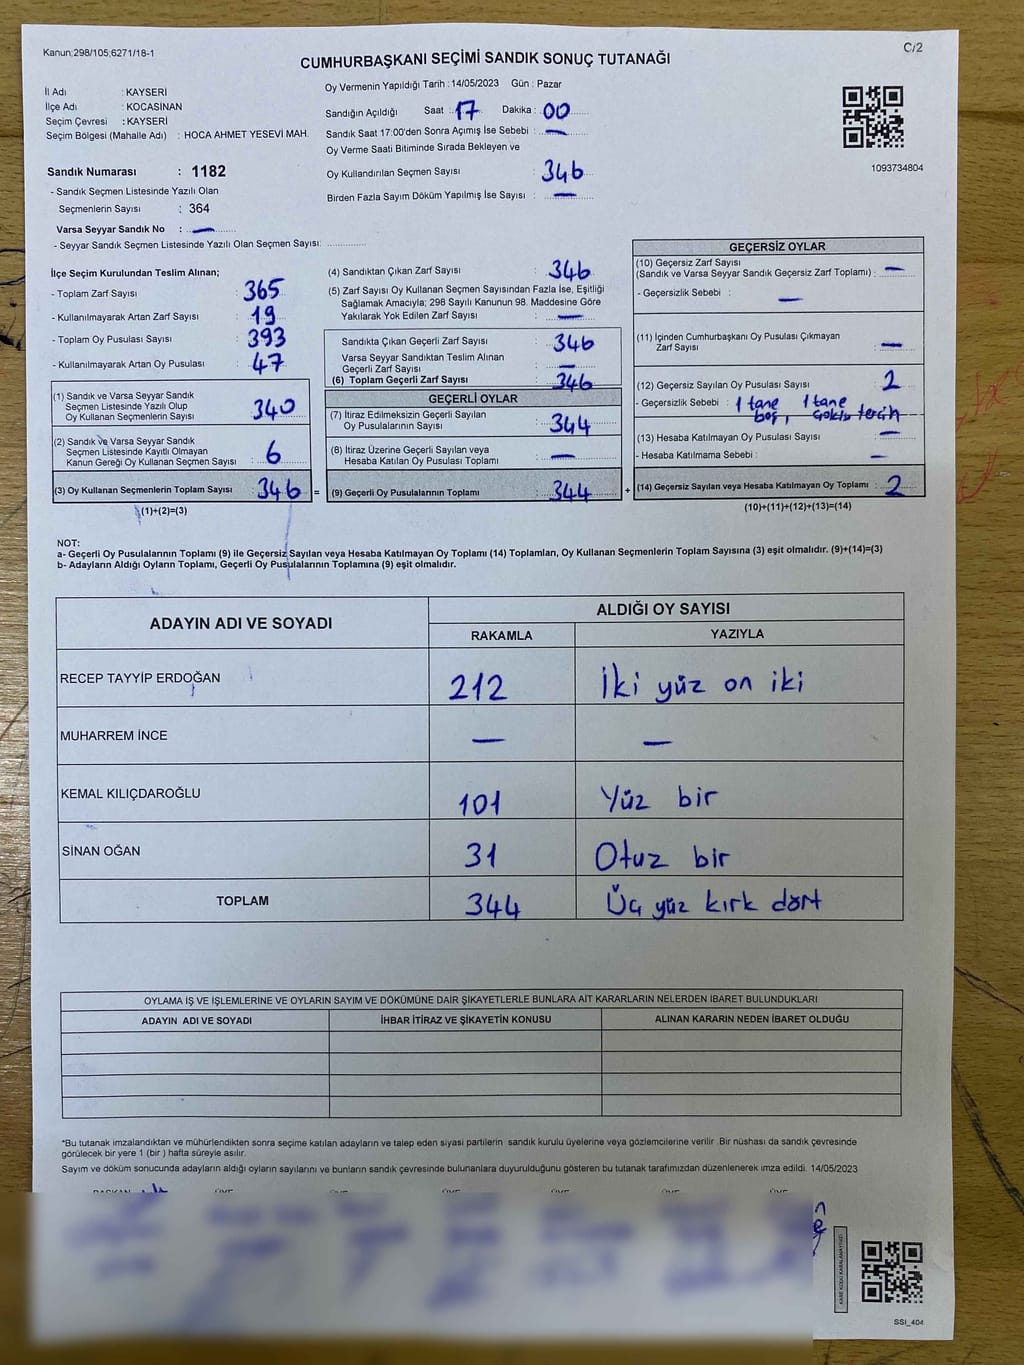 Kanun;298/105;6271/18-1
C/2
CUMHURBAŞKANI SEÇİMİ SANDIK SONUÇ TUTANAĞI
İl Adı : KAYSERİ
İlçe Adı : KOCASİNAN
Seçim Çevresi : KAYSERİ
Seçim Bölgesi (Mahalle Adı) : HOCA AHMET YESEVİ MAH.
Sandık Numarası : 1182
- Sandık Seçmen Listesinde Yazılı Olan
Seçmenlerin Sayısı : 364
Varsa Seyyar Sandık No : —
- Seyyar Sandık Seçmen Listesinde Yazılı Olan Seçmen Sayısı:
Oy Vermenin Yapıldığı Tarih : 14/05/2023 Gün : Pazar
Sandığın Açıldığı Saat : 17 Dakika : 00
Sandık Saat 17:00'den Sonra Açımış İse Sebebi : —
Oy Verme Saati Bitiminde Sırada Bekleyen ve
Oy Kullandırılan Seçmen Sayısı : 346
Birden Fazla Sayım Döküm Yapılmış İse Sayısı : —
1093734804
İlçe Seçim Kurulundan Teslim Alınan;
- Toplam Zarf Sayısı : 365
- Kullanılmayarak Artan Zarf Sayısı : 19
- Toplam Oy Pusulası Sayısı : 393
- Kullanılmayarak Artan Oy Pusulası : 47
(1) Sandık ve Varsa Seyyar Sandık
Seçmen Listesinde Yazılı Olup
Oy Kullanan Seçmenlerin Sayısı : 340
(2) Sandık ve Varsa Seyyar Sandık
Seçmen Listesinde Kayıtlı Olmayan
Kanun Gereği Oy Kullanan Seçmen Sayısı : 6
(3) Oy Kullanan Seçmenlerin Toplam Sayısı : 346 =
(1)+(2)=(3)
(4) Sandıktan Çıkan Zarf Sayısı : 346
(5) Zarf Sayısı Oy Kullanan Seçmen Sayısından Fazla İse, Eşitliği
Sağlamak Amacıyla; 298 Sayılı Kanunun 98. Maddesine Göre
Yakılarak Yok Edilen Zarf Sayısı : —
Sandıkta Çıkan Geçerli Zarf Sayısı : 346
Varsa Seyyar Sandıktan Teslim Alınan
Geçerli Zarf Sayısı : —
(6) Toplam Geçerli Zarf Sayısı : 346
GEÇERLİ OYLAR
(7) İtiraz Edilmeksizin Geçerli Sayılan
Oy Pusulalarının Sayısı : 344
(8) İtiraz Üzerine Geçerli Sayılan veya
Hesaba Katılan Oy Pusulası Toplamı : —
(9) Geçerli Oy Pusulalarının Toplamı : 344 +
GEÇERSİZ OYLAR
(10) Geçersiz Zarf Sayısı
(Sandık ve Varsa Seyyar Sandık Geçersiz Zarf Toplamı) : —
- Geçersizlik Sebebi : —
(11) İçinden Cumhurbaşkanı Oy Pusulası Çıkmayan
Zarf Sayısı : —
(12) Geçersiz Sayılan Oy Pusulası Sayısı : 2
- Geçersizlik Sebebi : 1 tane 1 tane
boş, tercih
(13) Hesaba Katılmayan Oy Pusulası Sayısı : —
- Hesaba Katılmama Sebebi : —
(14) Geçersiz Sayılan veya Hesaba Katılmayan Oy Toplamı : 2
(10)+(11)+(12)+(13)=(14)
NOT:
a- Geçerli Oy Pusulalarının Toplamı (9) ile Geçersiz Sayılan veya Hesaba Katılmayan Oy Toplamı (14) Toplamları, Oy Kullanan Seçmenlerin Toplam Sayısına (3) eşit olmalıdır. (9)+(14)=(3)
b- Adayların Aldığı Oyların Toplamı, Geçerli Oy Pusulalarının Toplamına (9) eşit olmalıdır.
ADAYIN ADI VE SOYADI ALDIĞI OY SAYISI
RAKAMLA YAZIYLA
RECEP TAYYİP ERDOĞAN 212 İki yüz on iki
MUHARREM İNCE — —
KEMAL KILIÇDAROĞLU 101 Yüz bir
SİNAN OĞAN 31 Otuz bir
TOPLAM 344 Üç yüz kırk dört
OYLAMA İŞ VE İŞLEMLERİNE VE OYLARIN SAYIM VE DÖKÜMÜNE DAİR ŞİKAYETLERLE BUNLARA AİT KARARLARIN NELERDEN İBARET BULUNDUKLARI
ADAYIN ADI VE SOYADI İHBAR İTİRAZ VE ŞİKAYETİN KONUSU ALINAN KARARIN NEDEN İBARET OLDUĞU
*Bu tutanak imzalandıktan ve mühürlendikten sonra seçime katılan adayların ve talep eden siyasi partilerin sandık kurulu üyelerine veya gözlemcilerine verilir .Bir nüshası da sandık çevresinde
görülecek bir yere 1 (bir ) hafta süreyle asılır.
Sayım ve döküm sonucunda adayların aldığı oyların sayılarını ve bunların sandık çevresinde bulunanlara duyurulduğunu gösteren bu tutanak tarafımızdan düzenlenerek imza edildi. 14/05/2023
BAŞKAN ÜYE ÜYE ÜYE ÜYE ÜYE ÜYE
KARE KODU KARALAMAYINIZ!
SSI_404